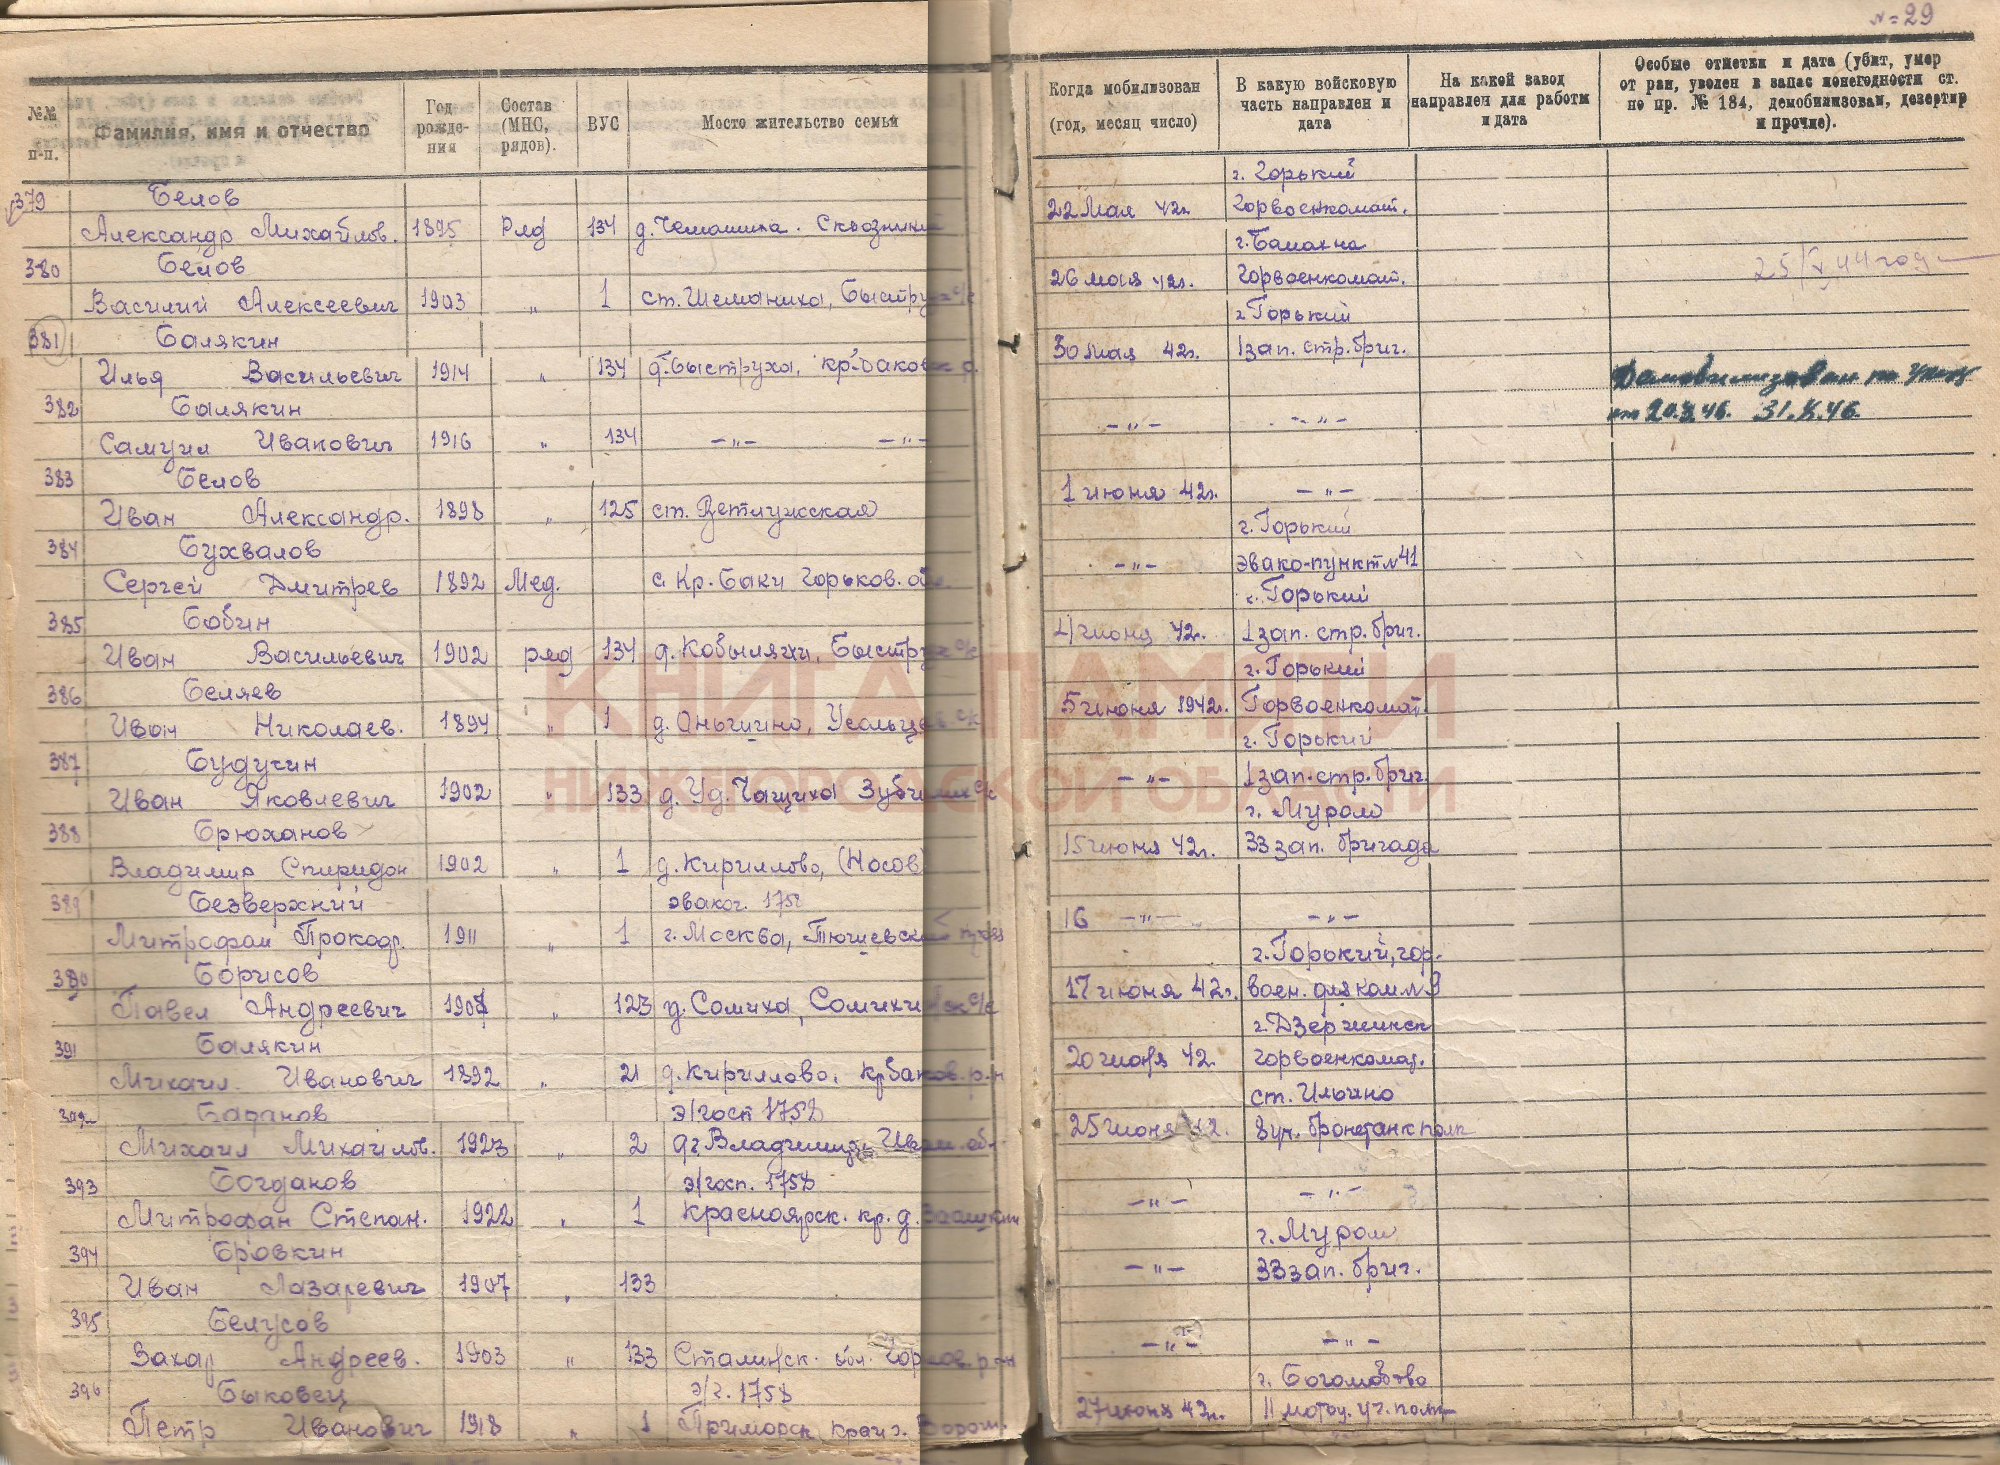 № 29
№№ п-п.
Фамилия, имя и отчество
Год рожде-ния
Состав (МНС, рядов).
ВУС
Место жительство семьи
Когда мобилизован (год, месяц число)
В какую войсковую часть направлен и дата
На какой завод направлен для работы и дата
Особые отметки и дата (убит, умер от ран, уволен в запас понегодности ст. по пр. № 184, демобилизован, дезертир и прочие).
379 Белов г. Горький
Александр Михайлов. 1895 Ряд 134 д. Чемашиха. 22 Мая 42г. Горвоенкомат.
380 Белов г. Балахна
Василий Алексеевич 1903 " 1 ст. Шеманиха, 26 мая 42г. Горвоенкомат. 25/V 44 год
381 Балякин г. Горький
Илья Васильевич 1914 " 134 д. Быструха, 30 мая 42г. 1 зап. стр. бриг.
382 Балякин Демобилизован по указу
Самуил Иванович 1916 " 134 –"– –"– –"– –"– 31.X.46.
383 Белов
Иван Александр. 1898 " 125 ст. Ветлужская 1 июня 42г. –"–
384 Бухвалов г. Горький
Сергей Дмитрев 1892 Мед. с. Кр. Баки Горьков. –"– эвако-пункт № 41
385 Бобин г. Горький
Иван Васильевич 1902 ряд 134 д. Кобыляхи, 4 июня 42г. 1 зап. стр. бриг.
386 Беляев г. Горький
Иван Николаев. 1894 " 1 5 июня 1942г. Горвоенкомат.
387 Будусин г. Горький
Иван Яковлевич 1902 " 133 д. Уд. Чащиха –"– 1 зап. стр. бриг.
388 Брюханов г. Муром
Владимир Спиридон 1902 " 1 д. Кириллово, (Носов) 15 июня 42г. 33 зап. бригада
389 Безверхний эваког. 1758
Митрофан 1911 " 1 г. Москва, 16 –"– –"–
390 Борисов г. Горький, гор.
Павел Андреевич " 123 д. Сомиха, 17 июня 42г. воен.
391 Балякин г. Дзержинск
Михаил Иванович 1892 " 21 д. Кириллово, 20 июня 42. горвоенкомат.
392 э/гост 1758 ст. Ильино
Михаил Михайлов. 1923 " 2 25 июня 42. 8 уч. бронетанк полк
393 Богданов э/госп. 1758
Митрофан Степан. 1922 " 1 Красноярск. кр. д. –"– –"–
394 Бровкин г. Муром
Иван Лазаревич 1907 " 133 –"– 33 зап. бриг.
395 Белусов
Захар Андреев. 1903 " 133 Сталинск. обл. –"– –"–
396 Быковец э/г. 1758
Петр Иванович 1918 " 1 Приморск край г. Ворош. 27 июня 42г. 11 мотоц. уч. полк
КНИГА ПАМЯТИ
НИЖЕГОРОДСКОЙ ОБЛАСТИ